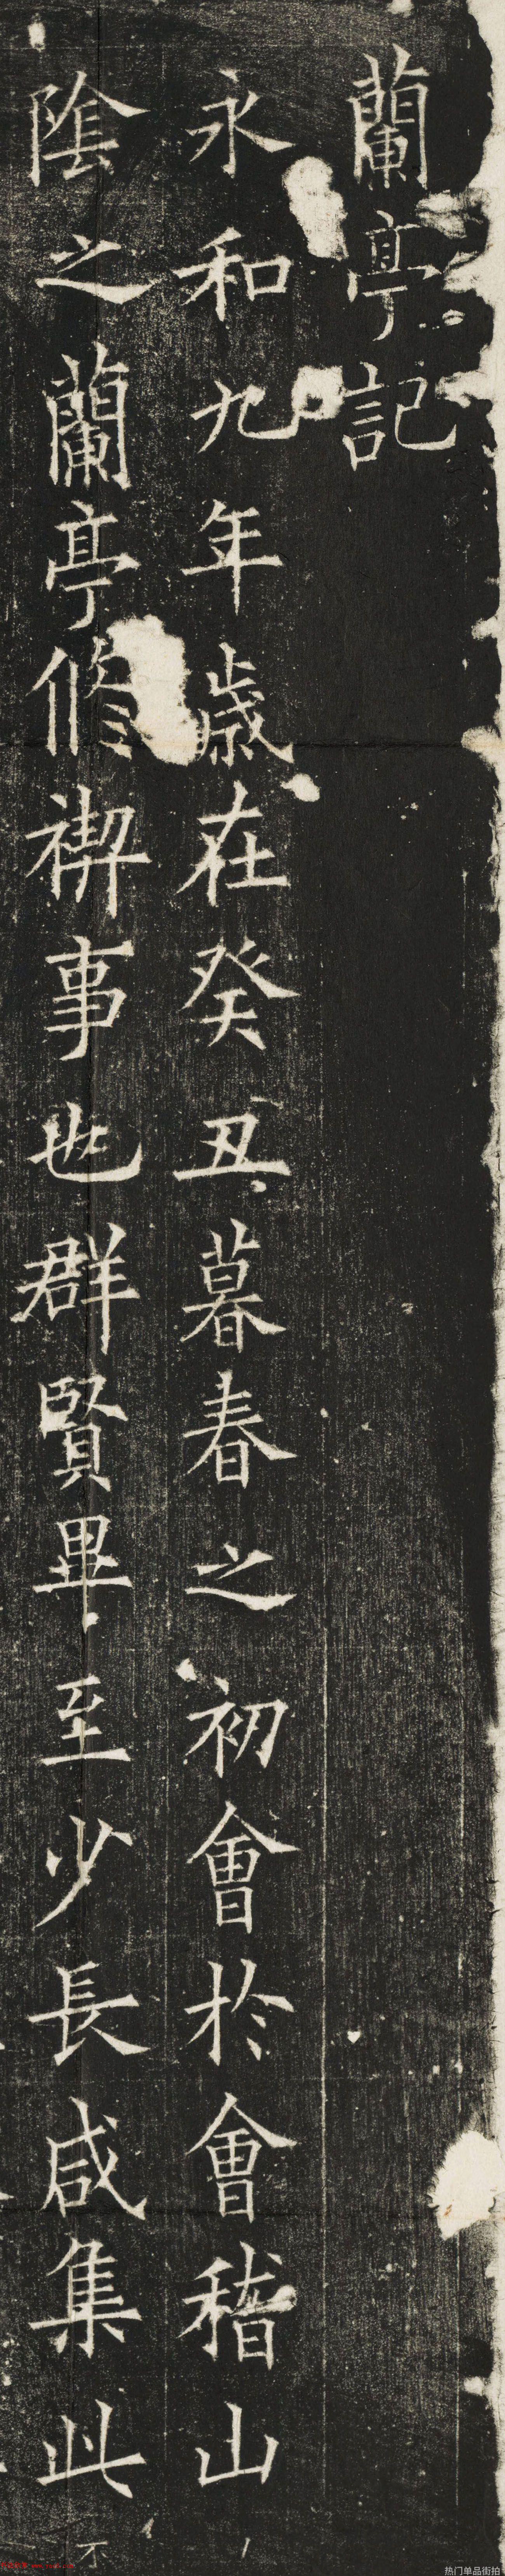 蘭亭記
永和九年歲在癸丑暮春之初會於會稽山
陰之蘭亭脩禊事也群賢畢至少長咸集此
不
热门单品街拍